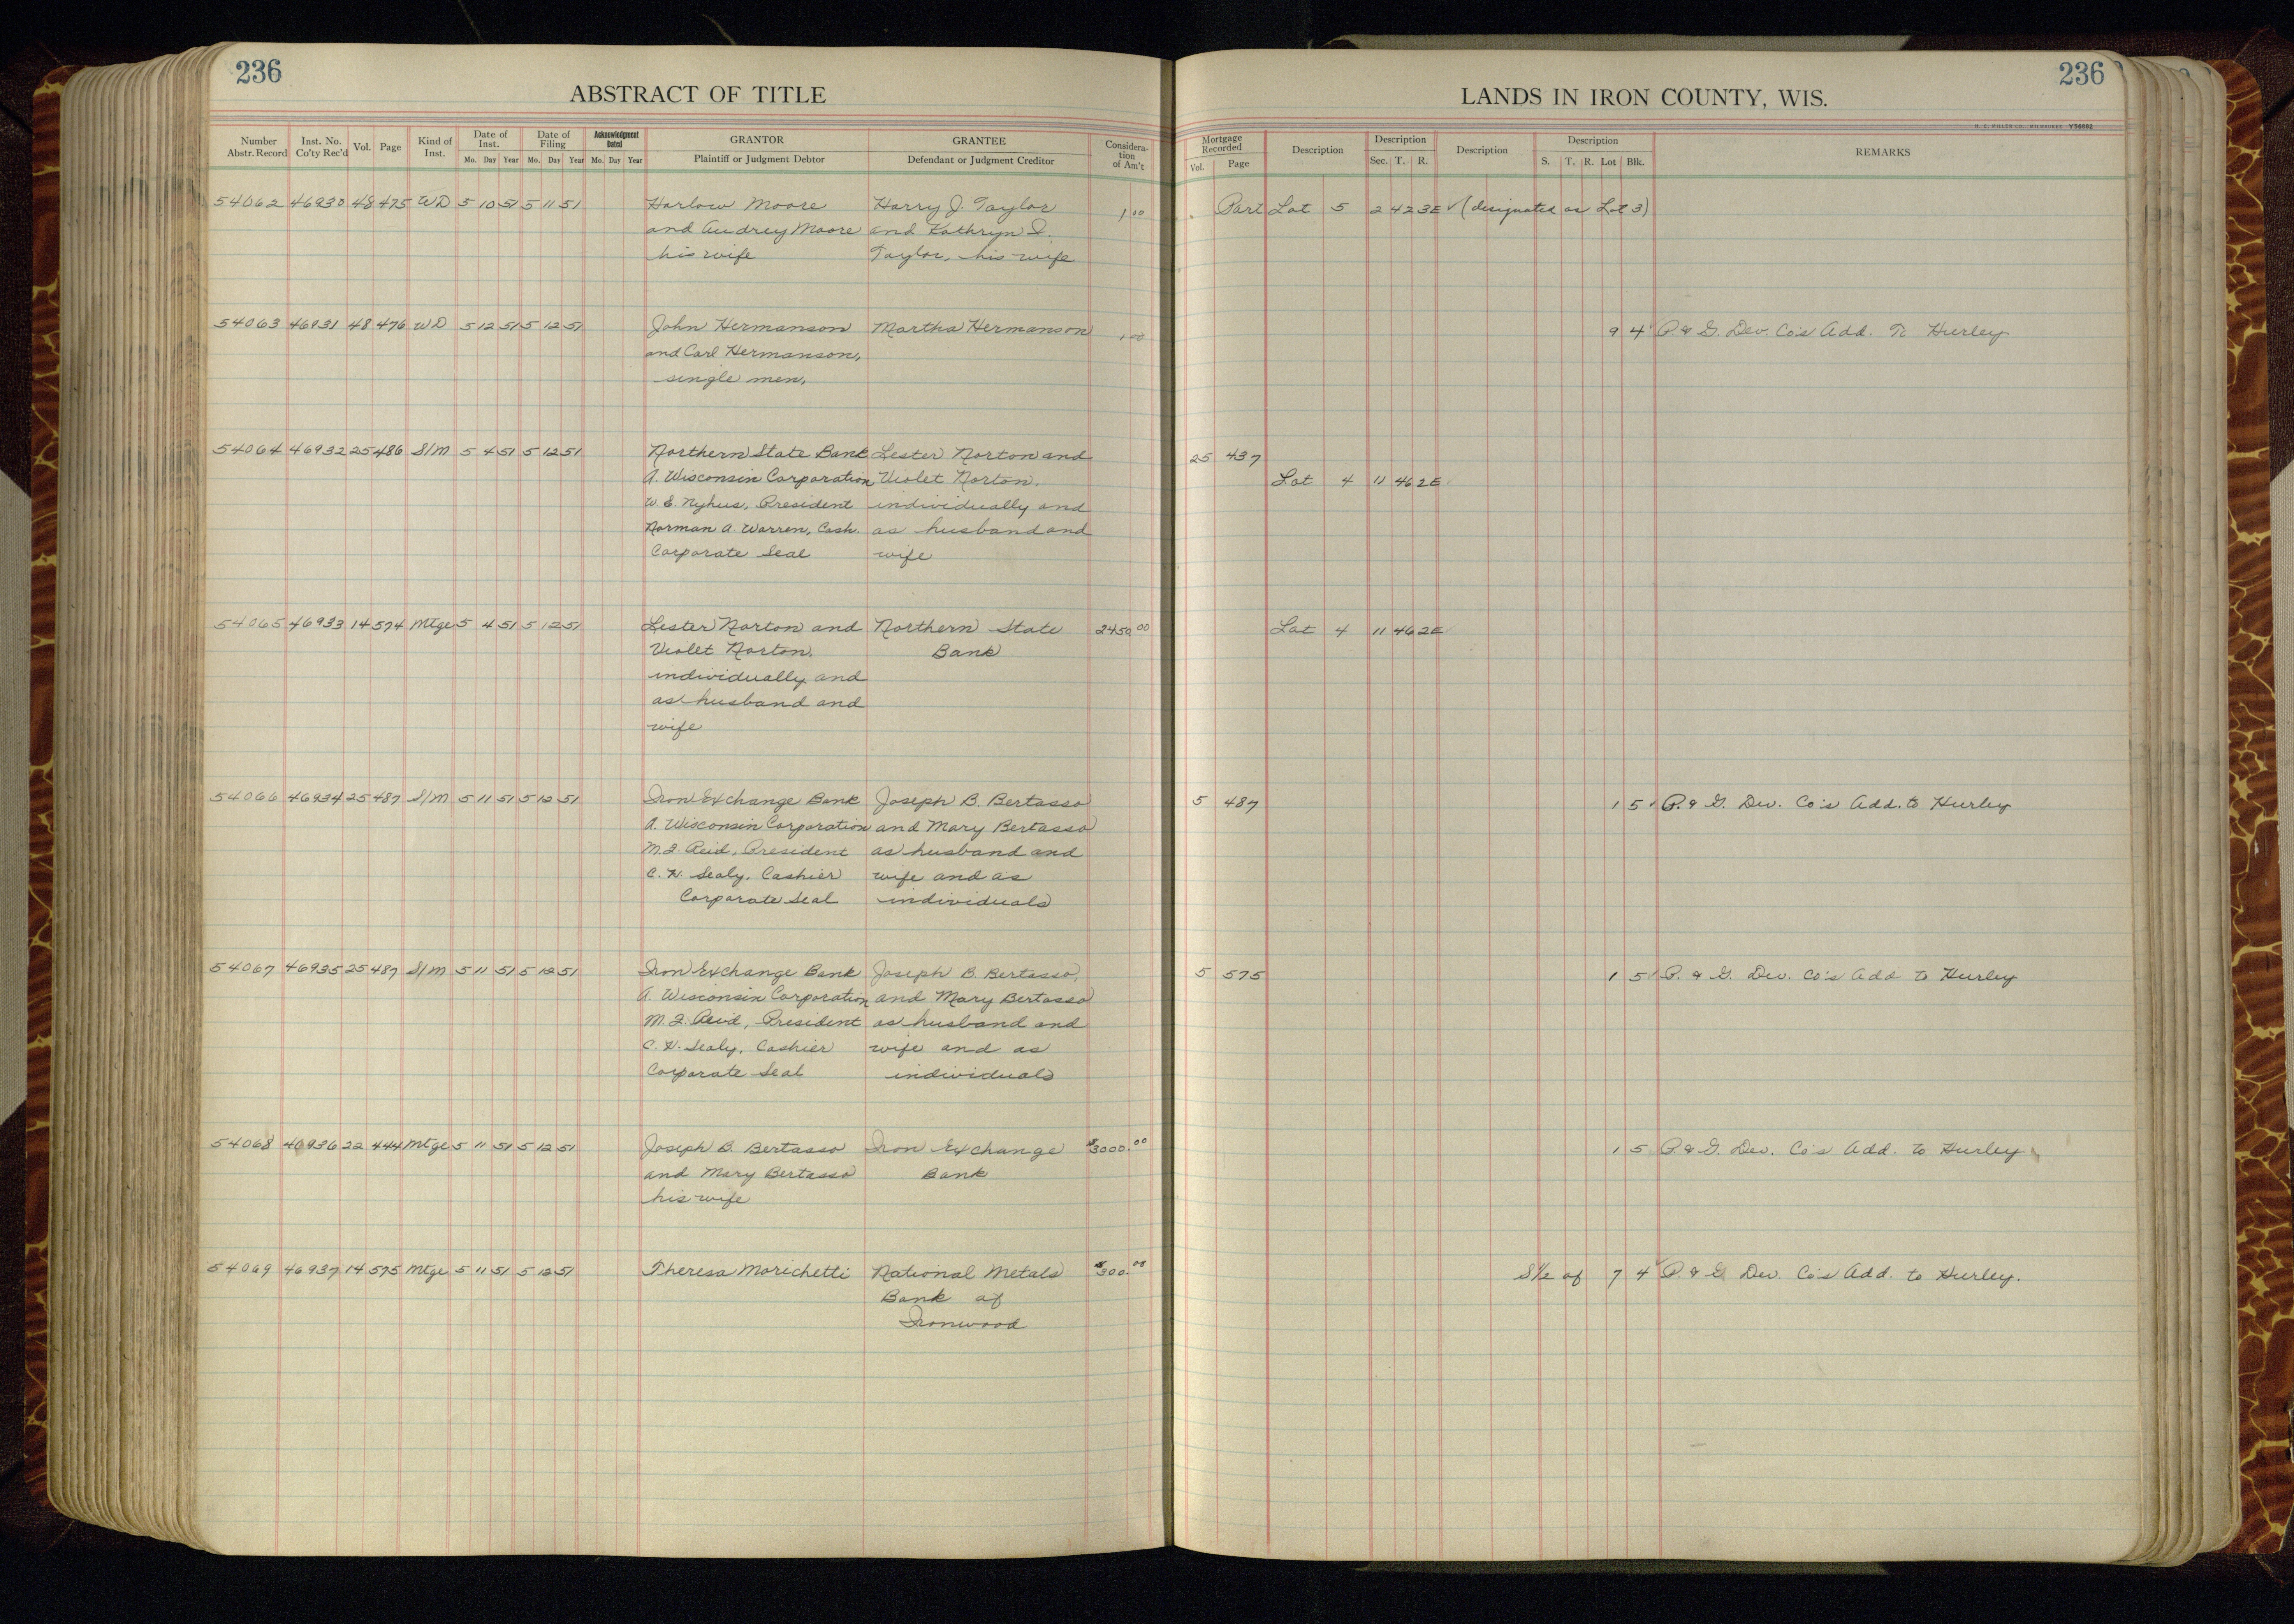 236
ABSTRACT OF TITLE
Number Abstr. Record Inst. No. Co'ty Rec'd Vol. Page Kind of Inst. Date of Inst. Mo. Day Year Date of Filing Mo. Day Year Acknowledgment Dated Mo. Day Year GRANTOR Plaintiff or Judgment Debtor GRANTEE Defendant or Judgment Creditor Consideration of Am't
54062 46930 48 475 WD 5 10 51 5 11 51 Harlow Moore Harry J. Taylor 1.00
and Audrey Moore and Kathryn I.
his wife Taylor, his wife
54063 46931 48 476 WD 5 12 51 5 12 51 John Hermanson Martha Hermanson 1.00
and Carl Hermanson,
single men,
54064 46932 25 486 S/M 5 4 51 5 12 51 Northern State Bank Lester Norton and
A. Wisconsin Corporation Violet Norton,
W. E. Nyhus, President individually and
Norman A. Warren, Cash. as husband and
Corporate Seal wife
54065 46933 14 574 Mtge 5 4 51 5 12 51 Lester Norton and Northern State 2450.00
Violet Norton, Bank
individually and
as husband and
wife
54066 46934 25 487 S/M 5 11 51 5 12 51 Iron Exchange Bank Joseph B. Bertasso
A. Wisconsin Corporation and Mary Bertasso
Reid, President as husband and
Sealy, Cashier wife and as
Corporate Seal individuals
54067 46935 25 487 S/M 5 11 51 5 12 51 Iron Exchange Bank Joseph B. Bertasso,
A. Wisconsin Corporation and Mary Bertasso
Reid, President as husband and
Sealy, Cashier wife and as
Corporate Seal individuals
54068 46936 22 444 Mtge 5 11 51 5 12 51 Joseph B. Bertasso Iron Exchange $3000.00
and Mary Bertasso Bank
his wife
54069 46937 14 575 Mtge 5 11 51 5 12 51 Theresa Morichetti National Metals $300.00
Bank of
Ironwood
236
LANDS IN IRON COUNTY, WIS.
H. C. MILLER CO., MILWAUKEE
Mortgage Recorded Vol. Page Description Description Sec. T. R. Description Description S. T. R. Lot Blk. REMARKS
Part Lot 5 2 42 3E (designated as Lot 3)
9 4 P. & G. Dev. Co's Add. To Hurley
25 437
Lot 4 11 46 2E
Lot 4 11 46 2E
5 487 1 5 P. & G. Dev. Co's Add. to Hurley
5 575 1 5 P. & G. Dev. Co's Add to Hurley
1 5 P. & G. Dev. Co's Add. to Hurley
S½ of 7 4 P. & G Dev. Co's Add. to Hurley.